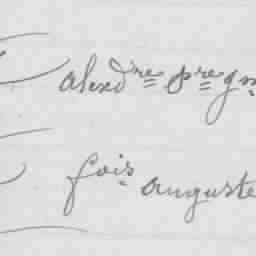 alexdre pre gm
fois auguste